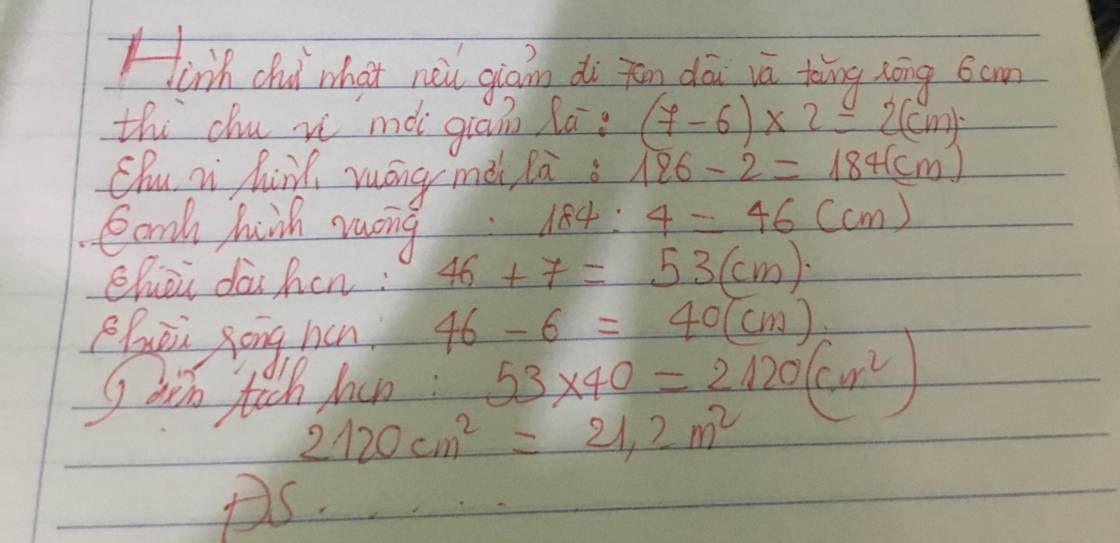 Hình chữ nhật nếu giảm đi 7cm dài và tăng rộng 6cm
thì chu vi mới giảm là : (7-6) x 2 = 2(cm).
Chu vi hình vuông mới là : 186 - 2 = 184(cm)
Cạnh hình vuông : 184 : 4 = 46 (cm)
Chiều dài hcn : 46 + 7 = 53(cm).
Chiều rộng hcn. 46 - 6 = 40(cm).
Diện tích hcn : 53 x 40 = 2120(cm²)
2120 cm² = 21,2 m²
ĐS . . . . . .